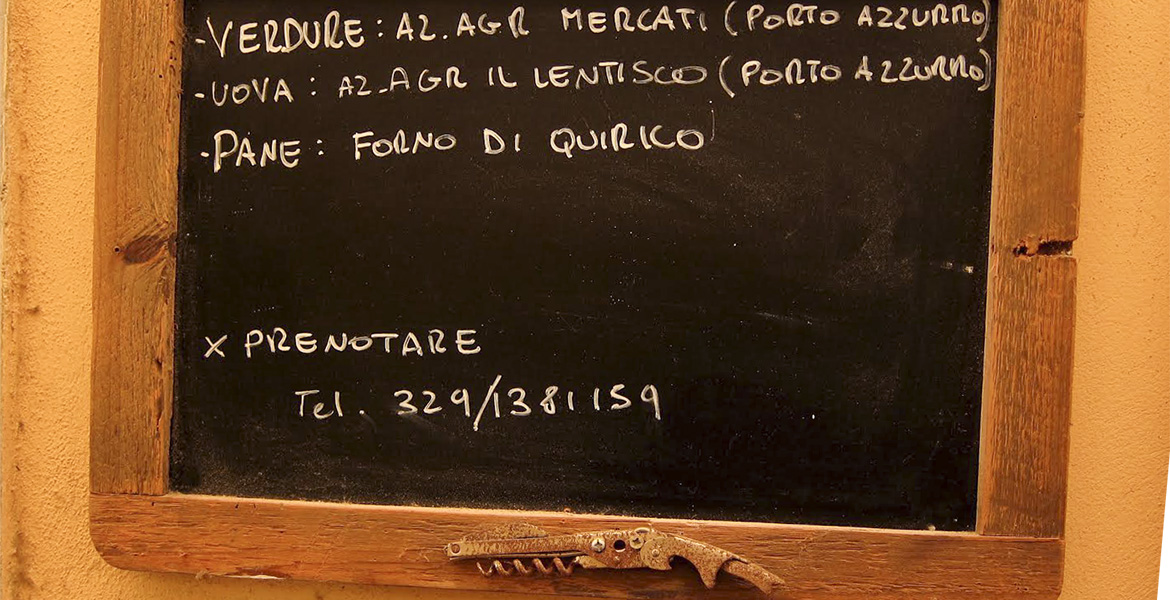 -VERDURE: AZ.AGR MERCATI (PORTO AZZURRO)
-UOVA: AZ.AGR IL LENTISCO (PORTO AZZURRO)
-PANE: FORNO DI QUIRICO
X PRENOTARE
Tel. 329/1381159